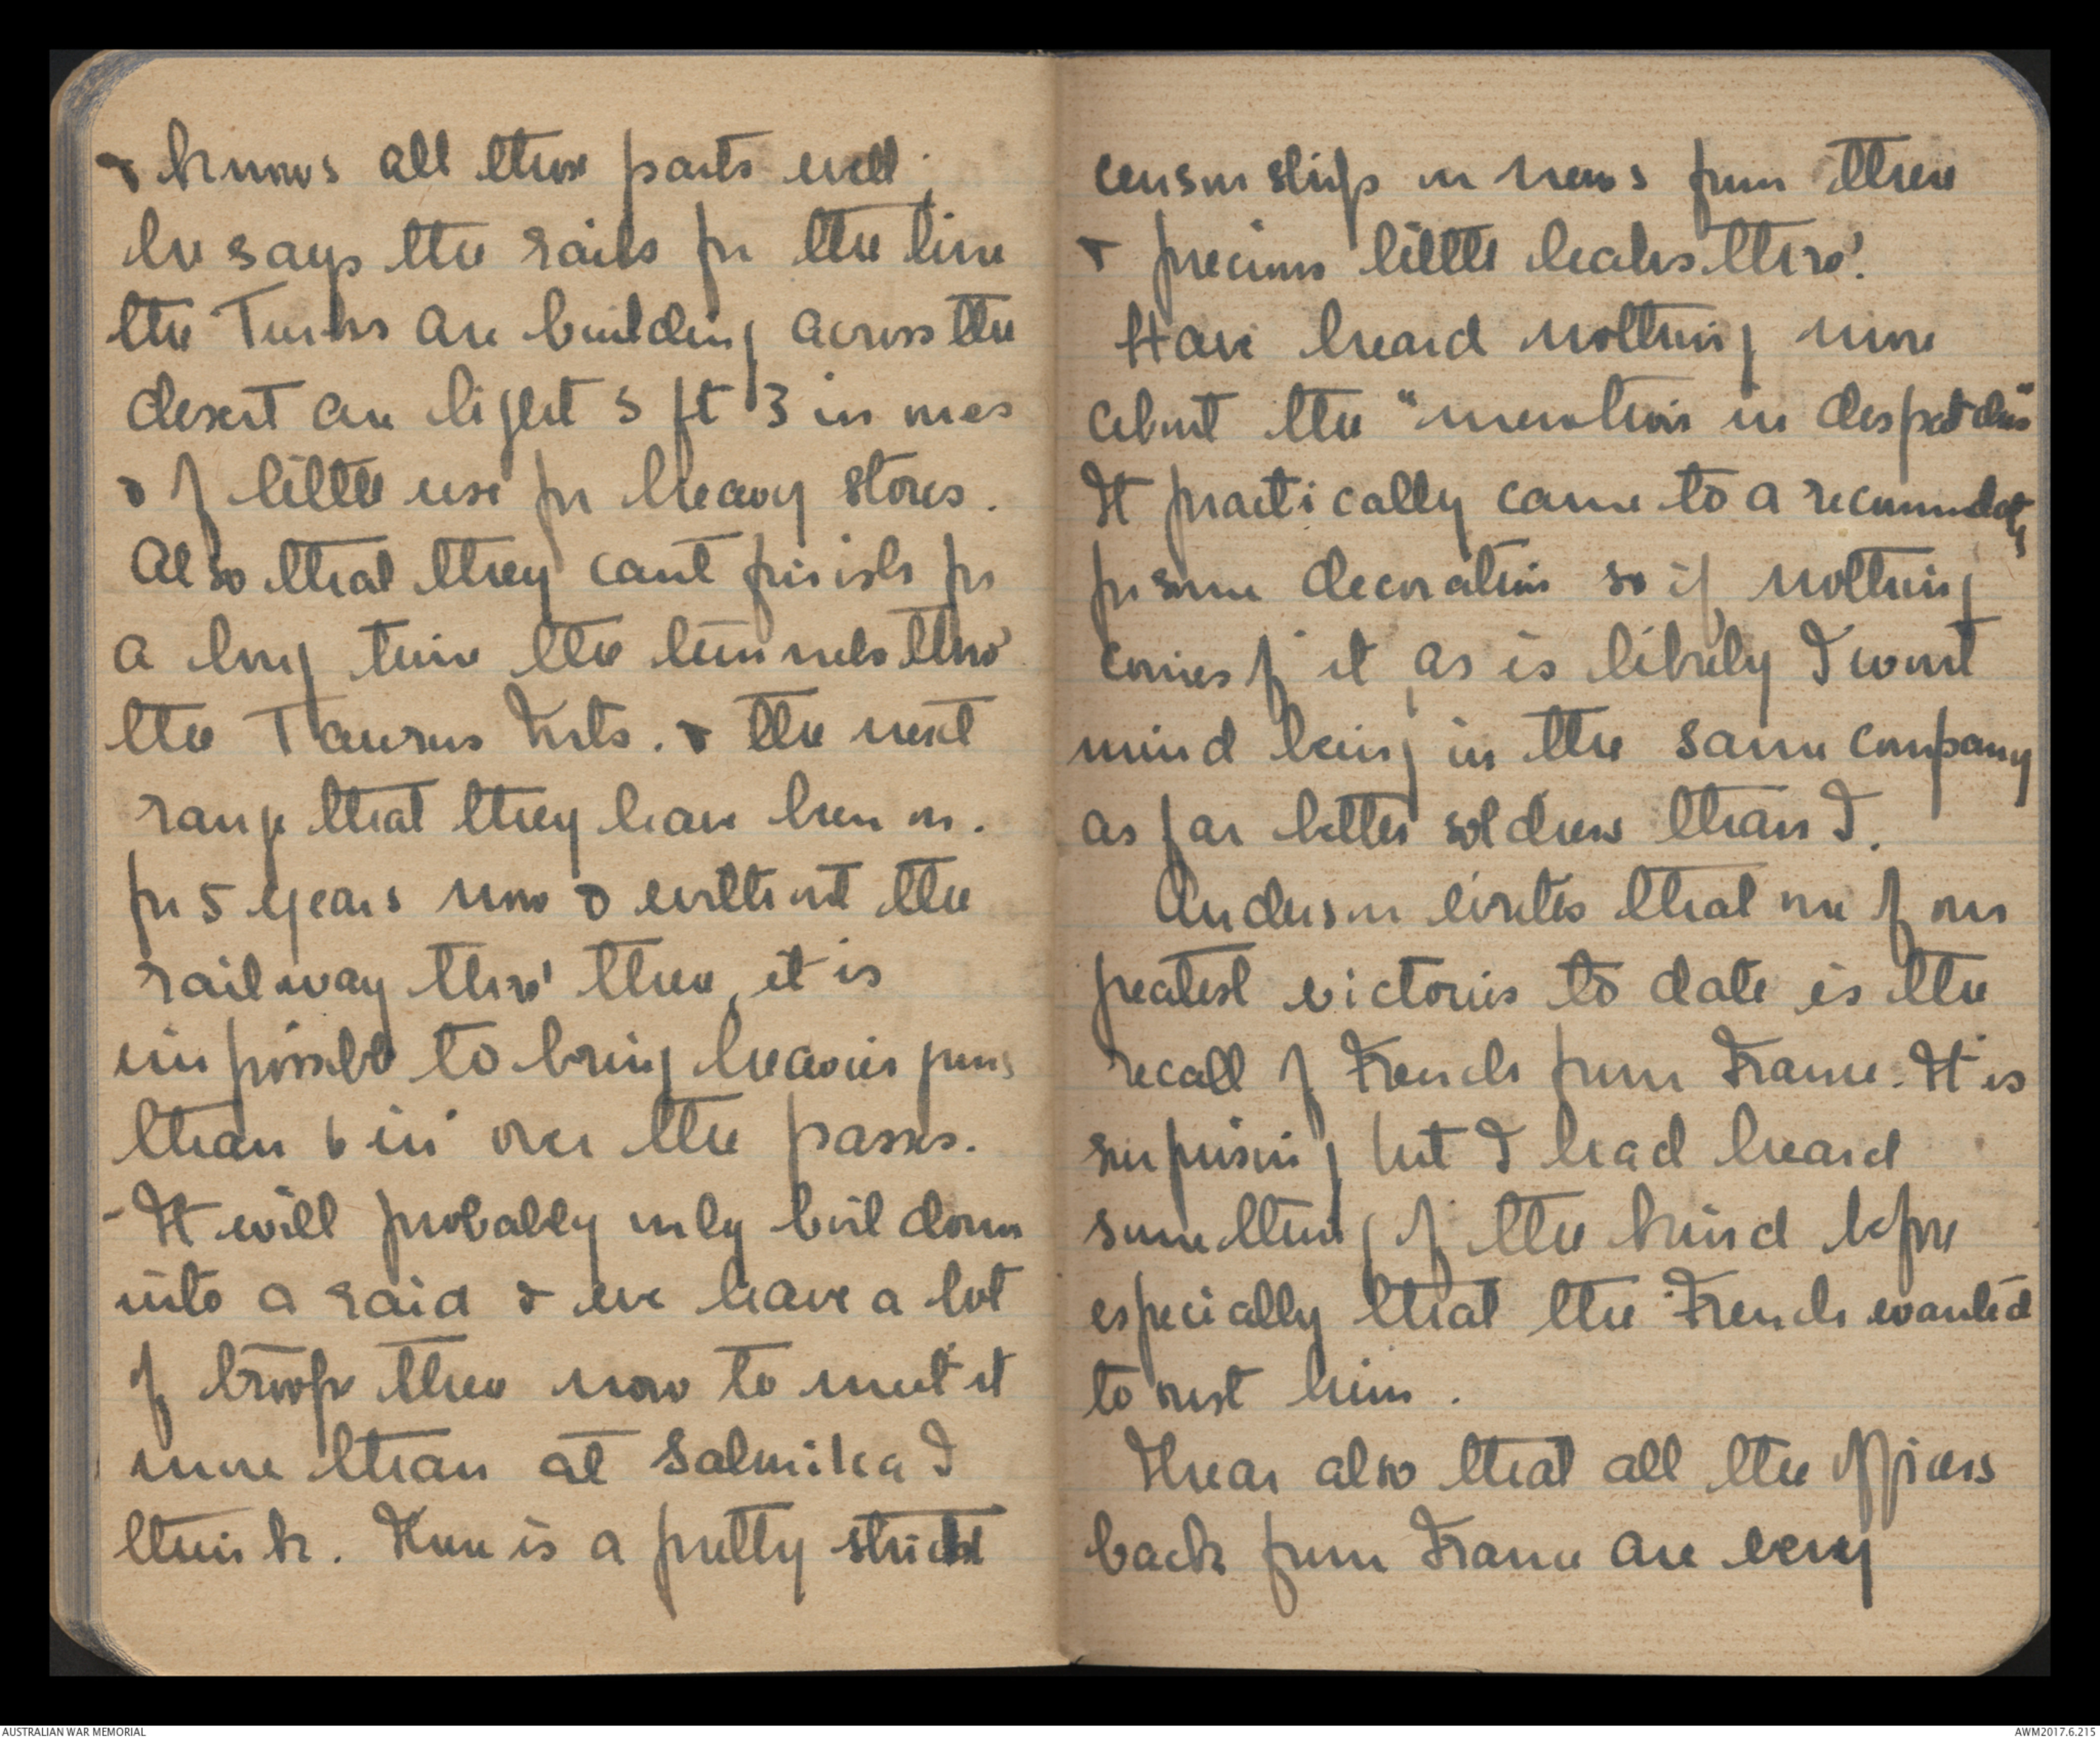 & knows all these parts well;
he says the rails for the line
the Turks are building across the
desert are light 3 ft 3 in ones
& of little use for heavy stores.
Also that they cant finish for
a long time the tunnels thro'
the Taurus Mts. & the next
range that they have been on.
for 5 years now & without the
railway thro' there, it is
impossible to bring heavier guns
than 6 in over the passes.
- It will probably only boil down
into a raid & we have a lot
of troops there now to meet it
more than at Salonika I
think. There is a pretty strict
censorship on news from there
& precious little leaks thro'.
Have heard nothing more
about the "mention in despatches"
It practically came to a recommendatn
for some decoration so if nothing
comes of it as is likely I wont
mind being in the same company
as far better soldiers than I.
Anderson writes that one of our
greatest victories to date is the
recall of French from France. It is
surprising but I had heard
something of the kind before
especially that the French wanted
to oust him.
Hear also that all the officers
back from France are very
AUSTRALIAN WAR MEMORIAL
AWM2017.6.215